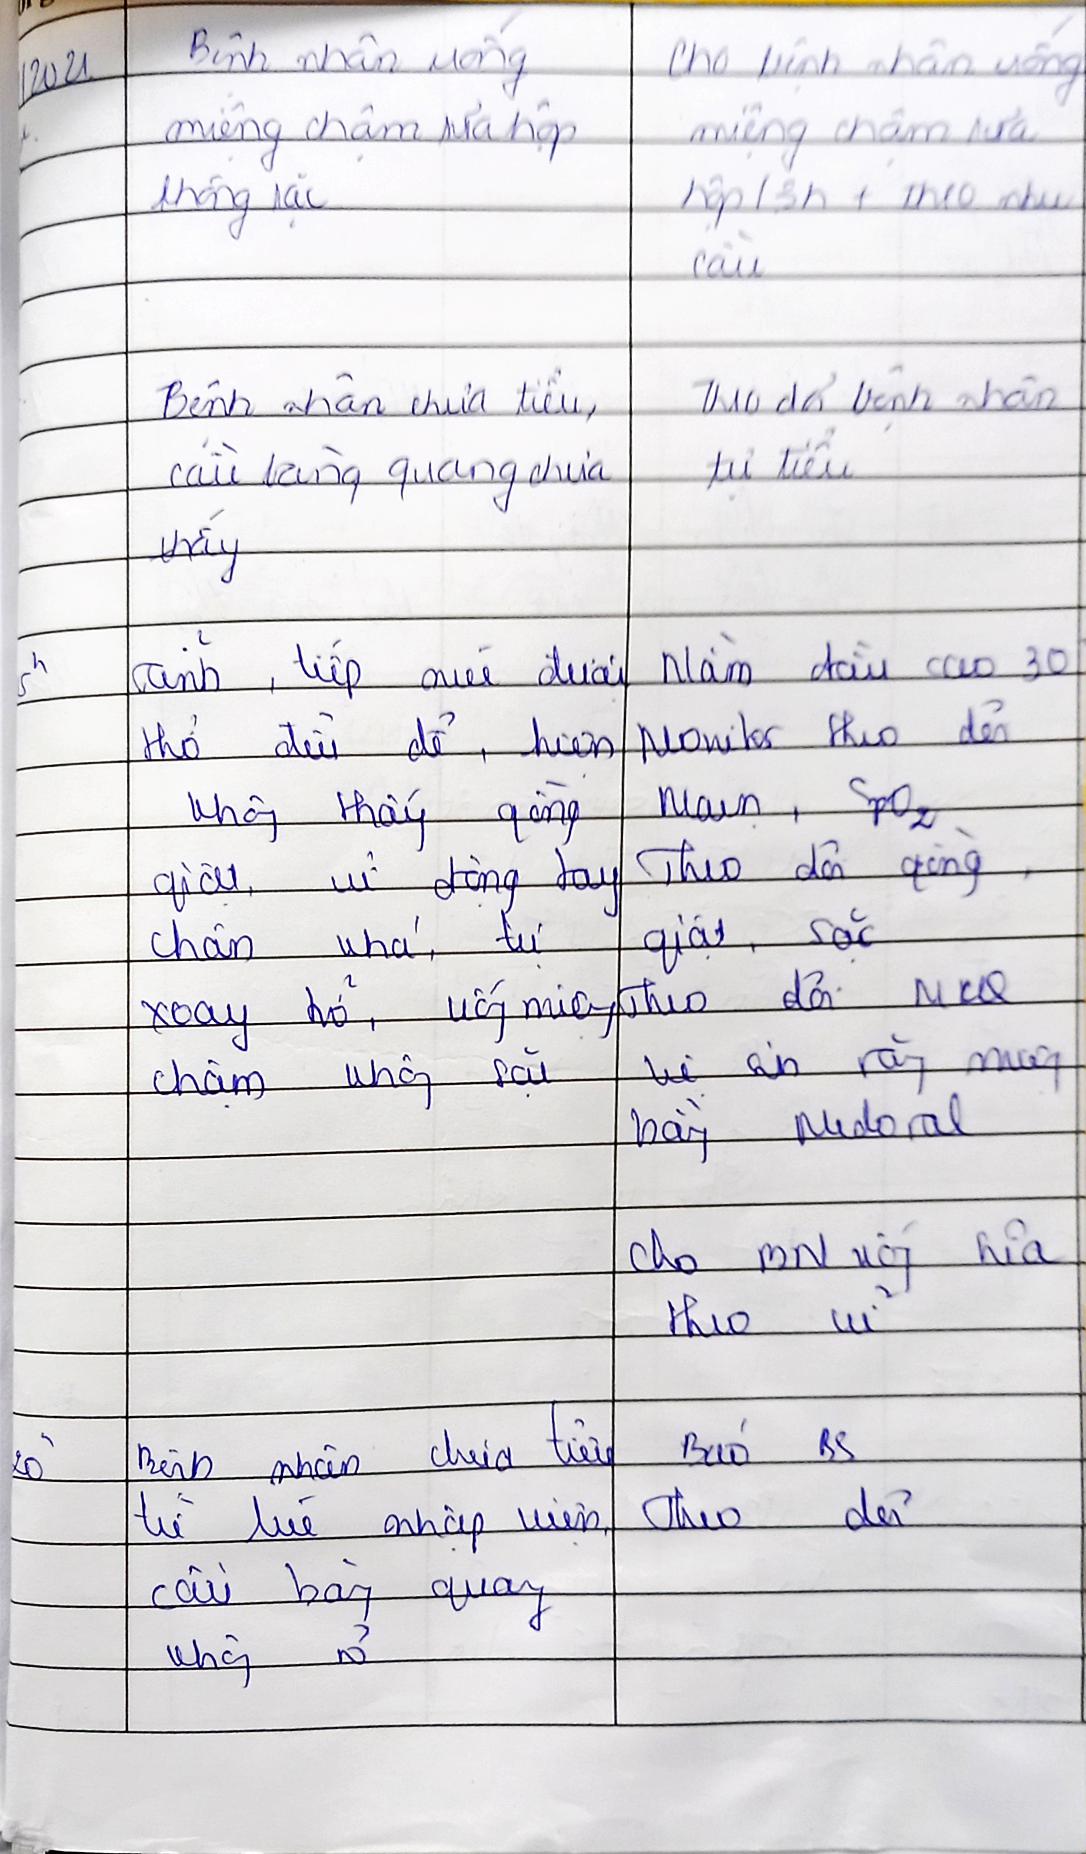 /2021
Bệnh nhân uống
miệng chậm sữa hộp
không sặc
Cho bệnh nhân uống
miệng chậm sữa
hộp / 3h + theo nhu
cầu
Bệnh nhân chưa tiểu,
cầu bàng quang chưa
thấy
Theo dõi bệnh nhân
tự tiểu
5h
Tỉnh, tiếp xúc được
thở đều dễ, hiện
không thấy gồng
giật, vđ động tay
chân khá, tự
xoay trở, uống miệng
chậm không sặc
Nằm đầu cao 30
Monitor theo dõi
Mạch, SpO2
Theo dõi gồng,
giật, sặc
Theo dõi NKQ
vệ sinh răng miệng
bằng Medoral
Cho BN uống sữa
theo
Bệnh nhân chưa tiểu
từ lúc nhập viện,
cầu bàng quang
không rõ
Báo BS
Theo dõi